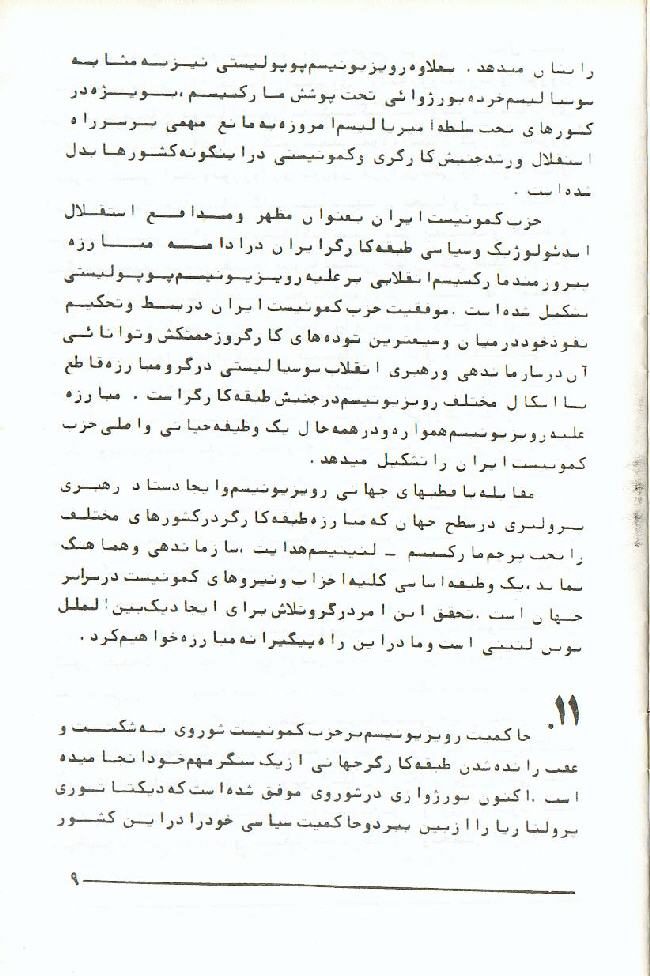 را نشان میدهد. بعلاوه رویزیونیسم پوپولیستی نیز به مثابه
سوسیالیسم خرده بورژوائی تحت پوشش مارکسیسم، بویژه در
کشورهای تحت سلطه امپریالیسم امروزه به مانع مهمی بر سر راه
استقلال و رشد جنبش کارگری و کمونیستی در اینگونه کشورها بدل
شده است.
حزب کمونیست ایران بعنوان مظهر و مدافع استقلال
ایدئولوژیک و سیاسی طبقه کارگر ایران در ادامه مبارزه
پیروزمند مارکسیسم انقلابی بر علیه رویزیونیسم پوپولیستی
تشکیل شده است. موفقیت حزب کمونیست ایران در بسط و تحکیم
نفوذ خود در میان وسیعترین توده‌های کارگر و زحمتکش و توانائی
آن در سازماندهی و رهبری انقلاب سوسیالیستی در گرو مبارزه قاطع
با اشکال مختلف رویزیونیسم در جنبش طبقه کارگر است. مبارزه
علیه رویزیونیسم همواره و در همه حال یک وظیفه حیاتی و اصلی حزب
کمونیست ایران را تشکیل میدهد.
مقابله با قطبهای جهانی رویزیونیسم و ایجاد ستاد رهبری
پرولتری در سطح جهان که مبارزه طبقه کارگر در کشورهای مختلف
را تحت پرچم مارکسیسم ـ لنینیسم هدایت، سازماندهی و هماهنگ
نماید، یک وظیفه اساسی کلیه احزاب و نیروهای کمونیست در سراسر
جهان است. تحقق این امر در گرو تلاش برای ایجاد یک بین‌الملل
نوین لنینی است و ما در این راه پیگیرانه مبارزه خواهیم کرد.
۱۱.
حاکمیت رویزیونیسم بر حزب کمونیست شوروی به شکست و
عقب رانده شدن طبقه کارگر جهانی از یک سنگر مهم خود انجامیده
است. اکنون بورژوازی در شوروی موفق شده است که دیکتاتوری
پرولتاریا را از بین ببرد و حاکمیت سیاسی خود را در این کشور
۹